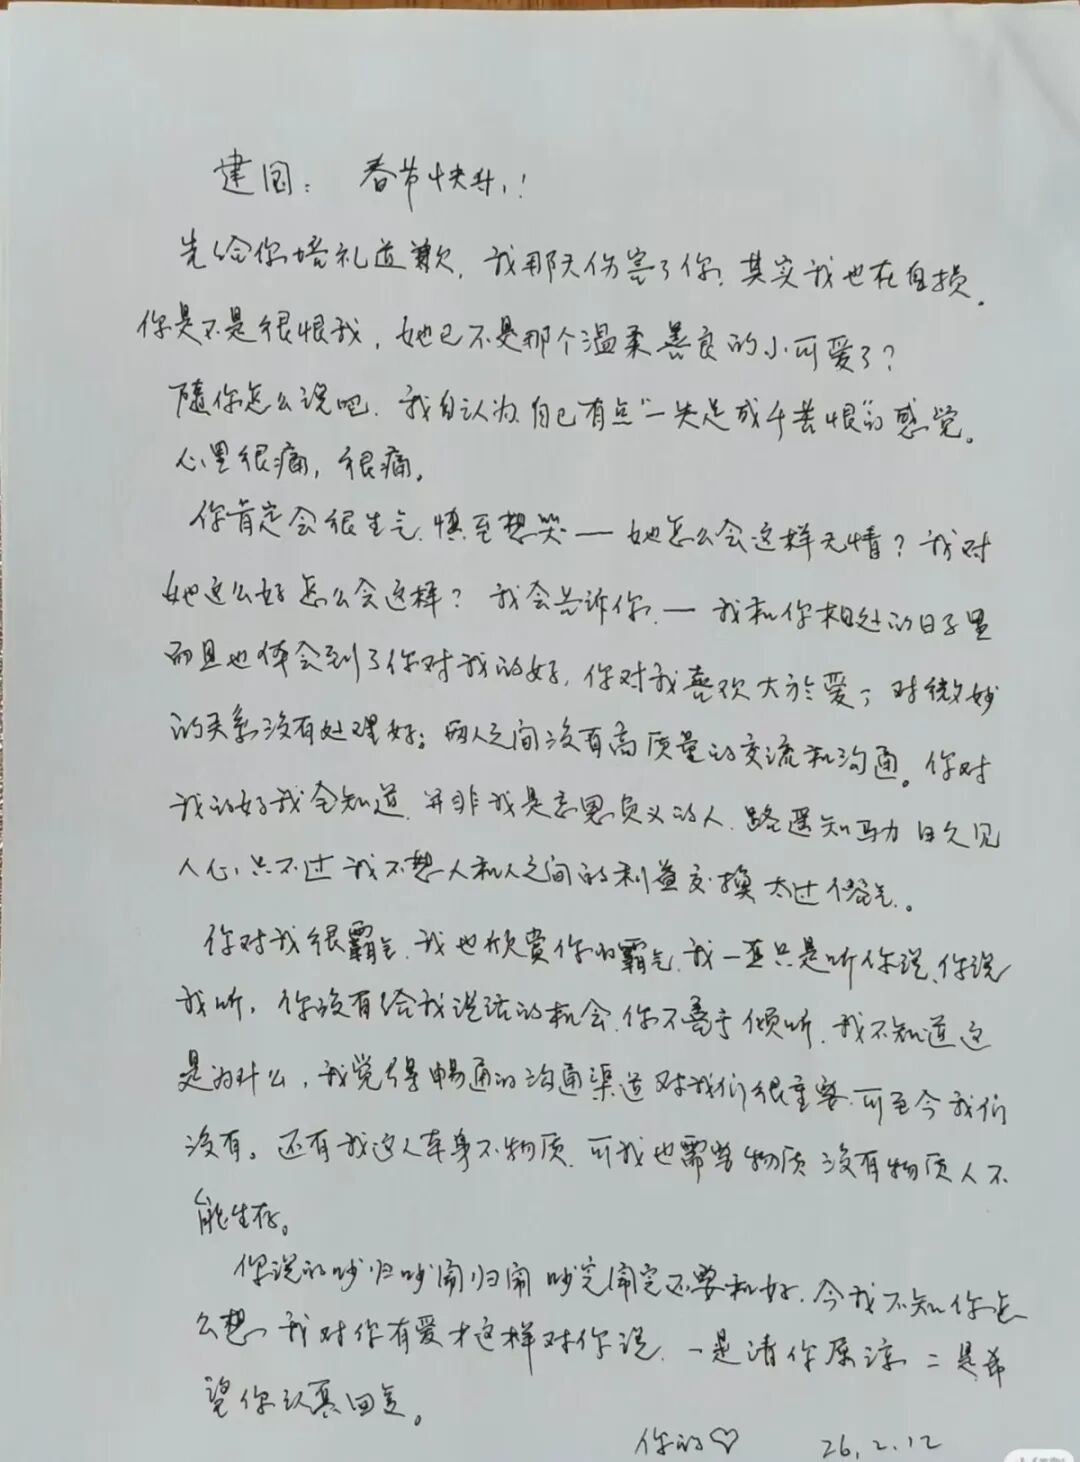 建国： 春节快乐！
先给你培礼道歉，我那天伤害了你，其实我也在自损。
你是不是很恨我，她已不是那个温柔善良的小可爱了？
随你怎么说吧，我自认为自己有点“一失足成千苦恨”的感觉。
心里很痛，很痛。
你肯定会很生气，慎至想哭——她怎么会这样无情？我对
她这么好怎么会这样？我会告诉你，——我和你相处的日子里
而且也体会到了你对我的好，你对我喜欢大於爱；对微妙
的关系没有处理好；两人之间没有高质量的交流和沟通。你对
我的好我全知道，并非我是忘恩负义的人，路遥知马力日久见
人心，只不过我不想人和人之间的利益交换太过俗气。
你对我很霸气，我也欣赏你的霸气，我一直只是听你说、你说
我听，你没有给我说话的机会，你不善于倾听，我不知道这
是为什么，我觉得畅通的沟通渠道对我们很重要，可至今我们
没有。还有我这人本身不物质，可我也需要物质没有物质人不
能生存。
你说的吵归吵闹归闹吵完闹完还要和好，今我不知你怎
么想，我对你有爱才这样对你说，一是请你原谅二是希
望你认真回复。
你的♡ 26.2.12